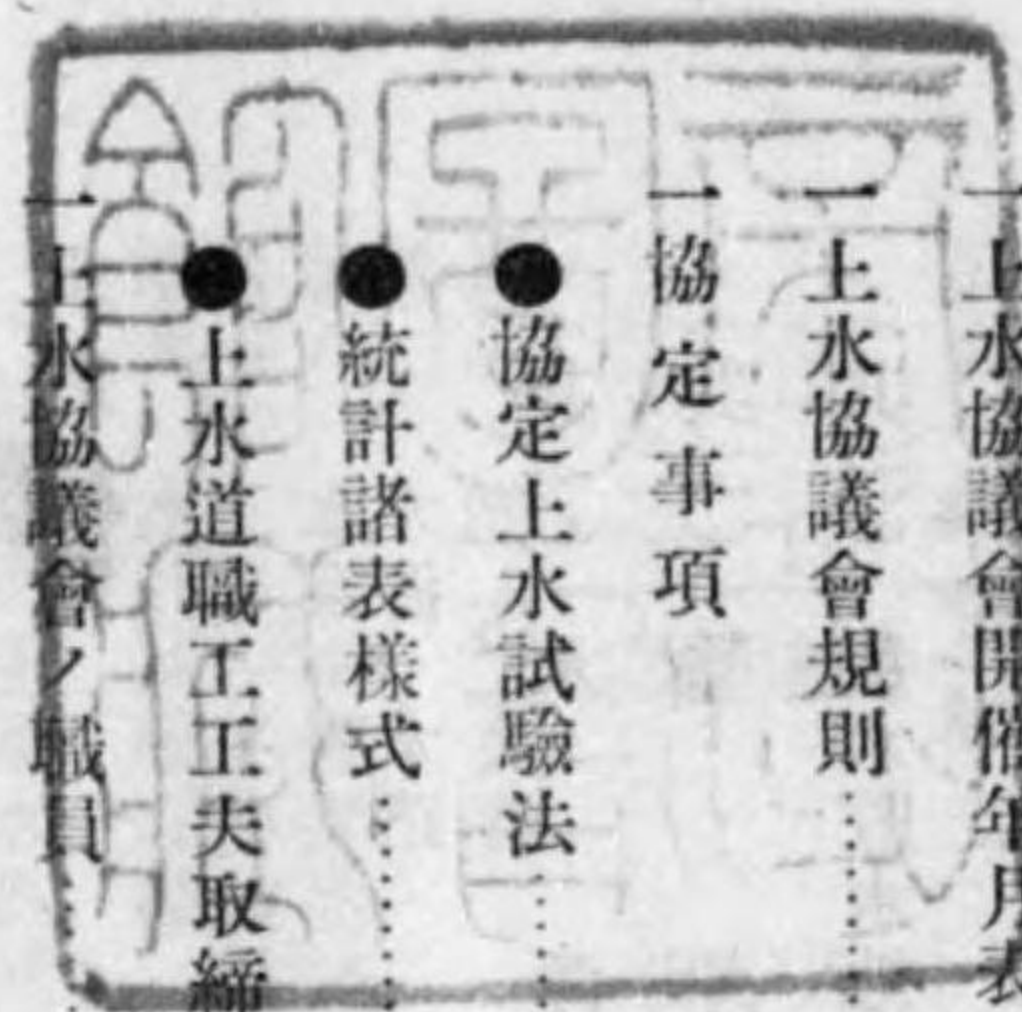 一 上水協議會開催年月表
一 上水協議會規則
一 協定事項
●協定上水試驗法
●統計諸表樣式
●上水道職工工夫取締
一 上水協議會ノ職員